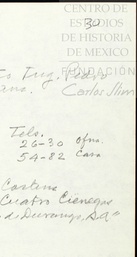 CENTRO DE
ESTUDIOS
DE HISTORIA
DE MEXICO
30
FUNDACIÓN
Carlos Slim
to Ing. Pedro
ano.
Tels.
26-30 Ofna.
54-82 Casa
Castena
Cuatro Cienegas
de Durango,